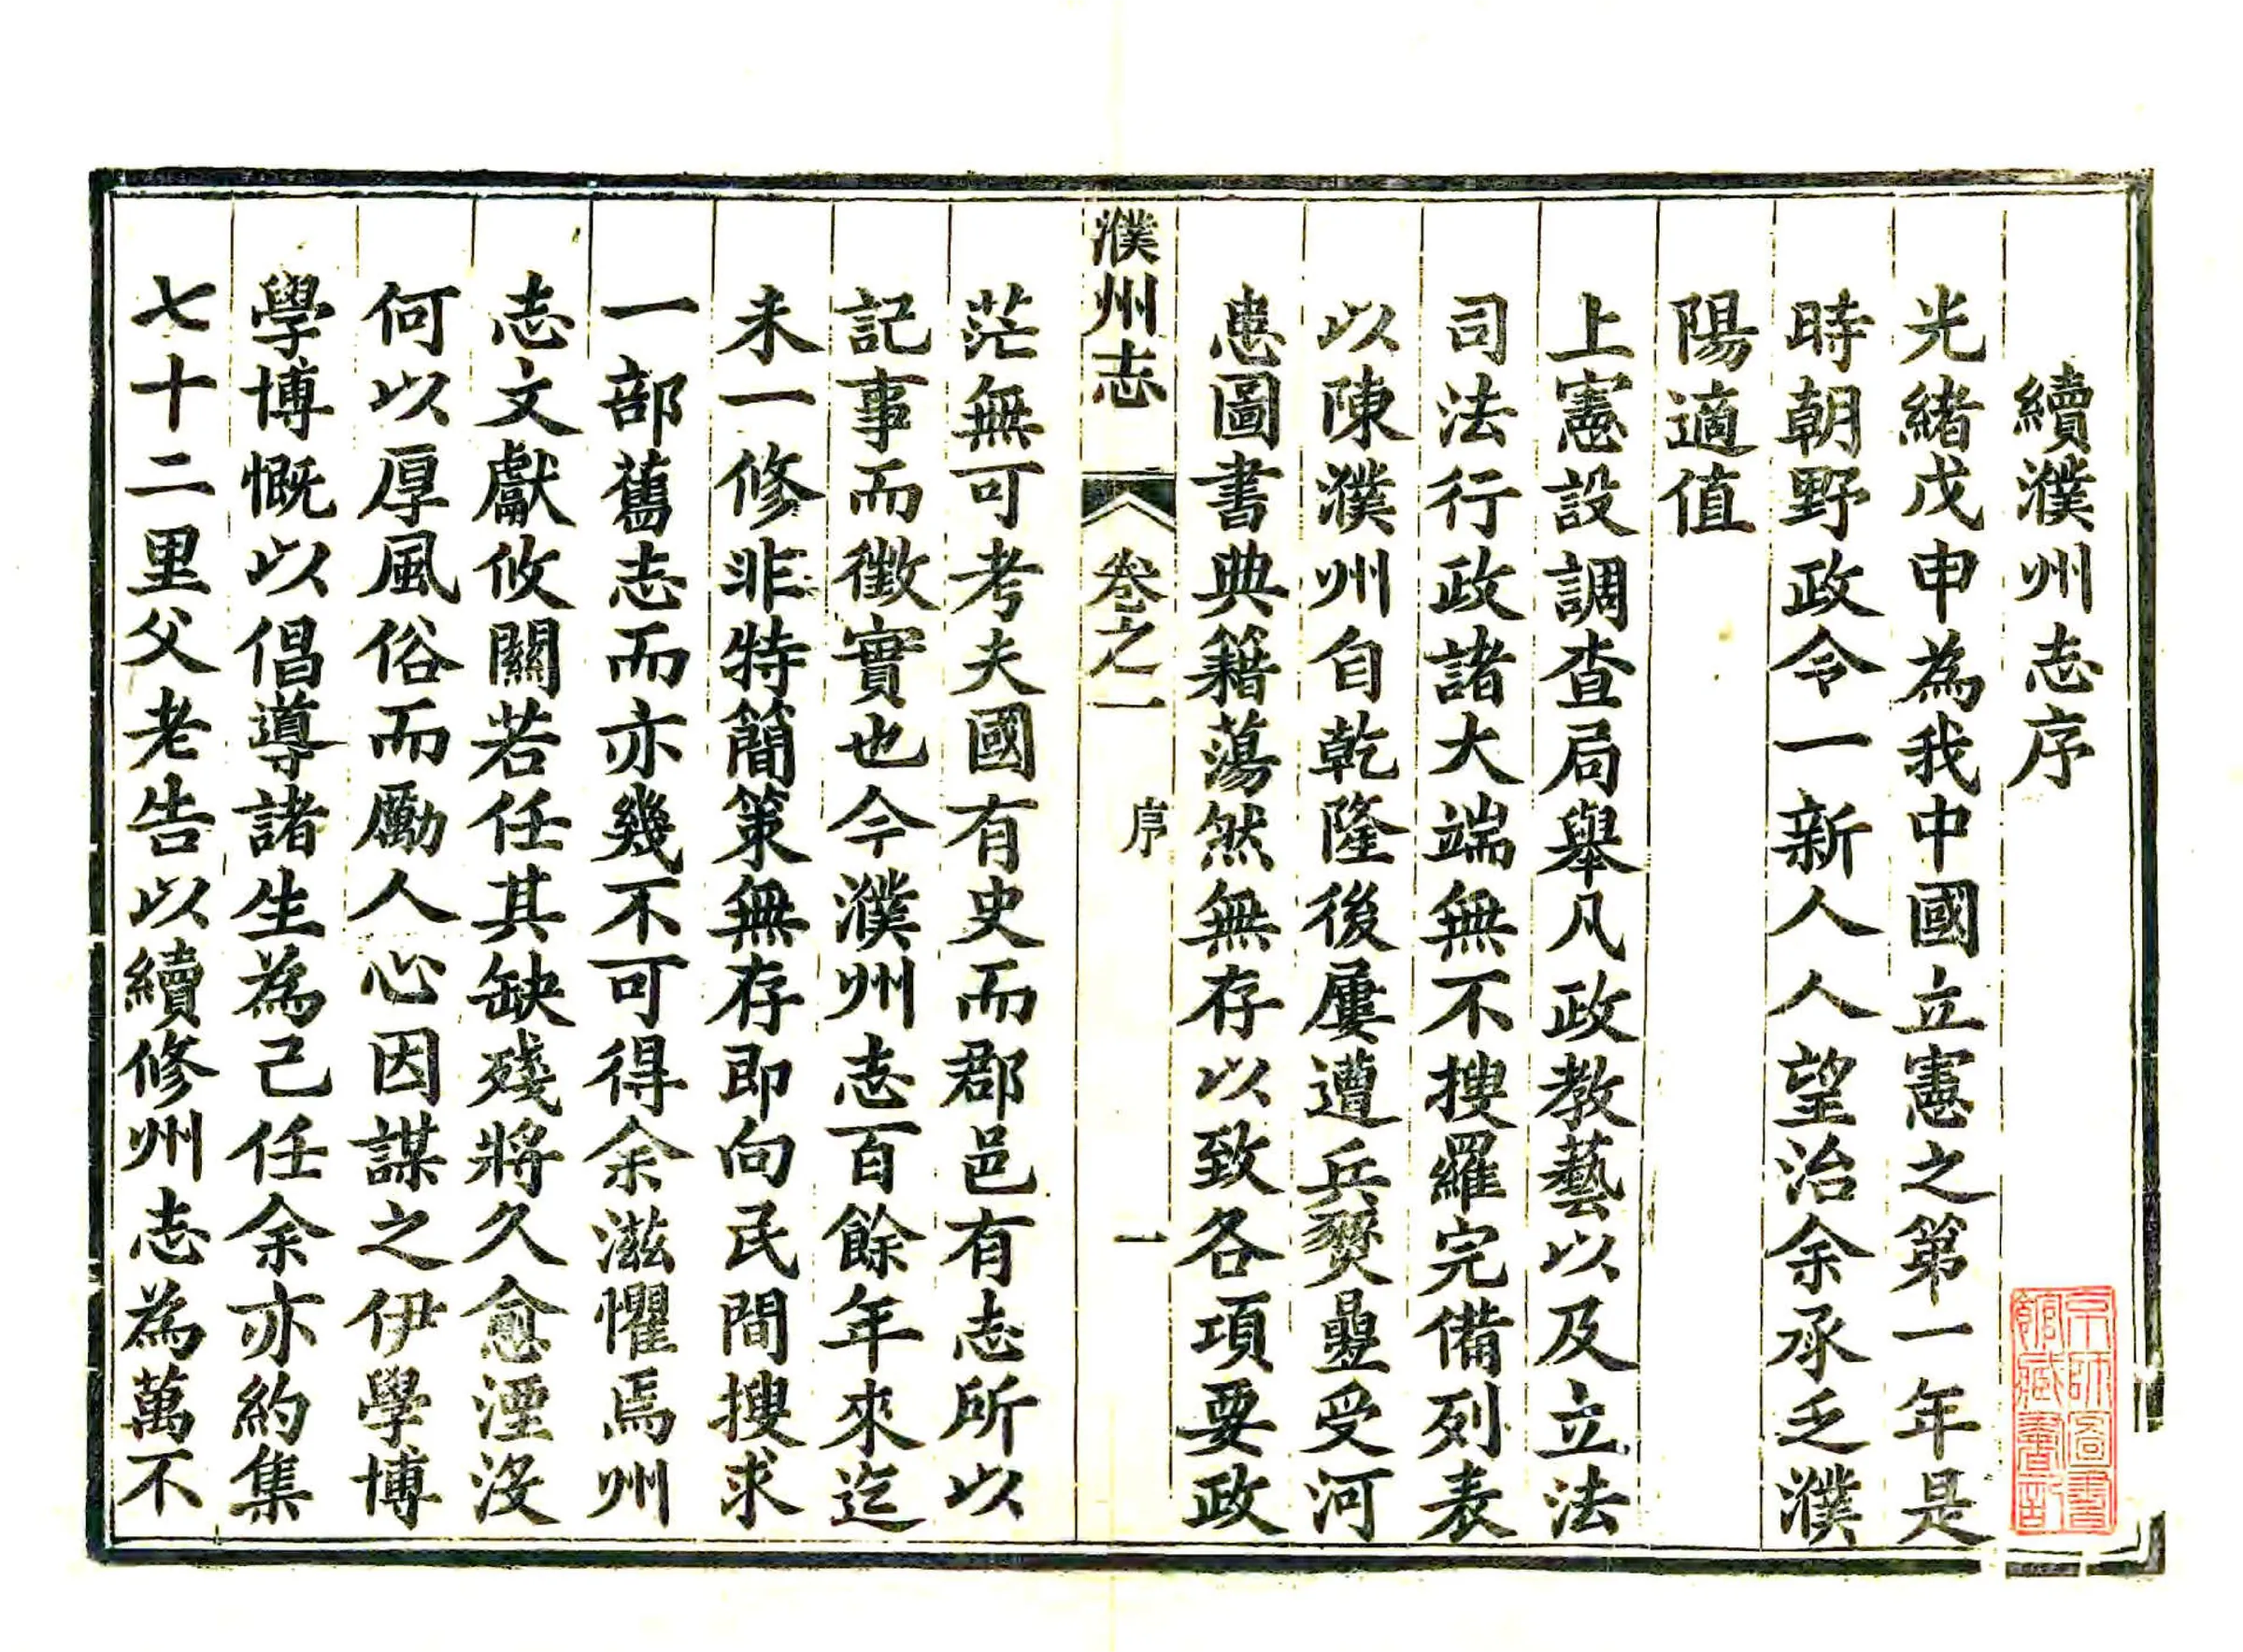 續濮州志序
光緒戊申為我中國立憲之第一年是
時朝野政令一新人人望治余承乏濮
陽適值
上憲設調查局舉凡政教藝以及立法
司法行政諸大端無不搜羅完備列表
以陳濮州自乾隆後屢遭兵燹疊受河
患圖書典籍蕩然無存以致各項要政
濮州志 卷之一 序 一
茫無可考夫國有史而郡邑有志所以
記事而徵實也今濮州志百餘年來迄
未一修非特簡策無存即向民間搜求
一部舊志而亦幾不可得余滋懼焉州
志文獻攸關若任其缺殘將久愈湮沒
何以厚風俗而勵人心因謀之伊學博
學博慨以倡導諸生為己任余亦約集
七十二里父老告以續修州志為萬不
京師圖書館藏書記